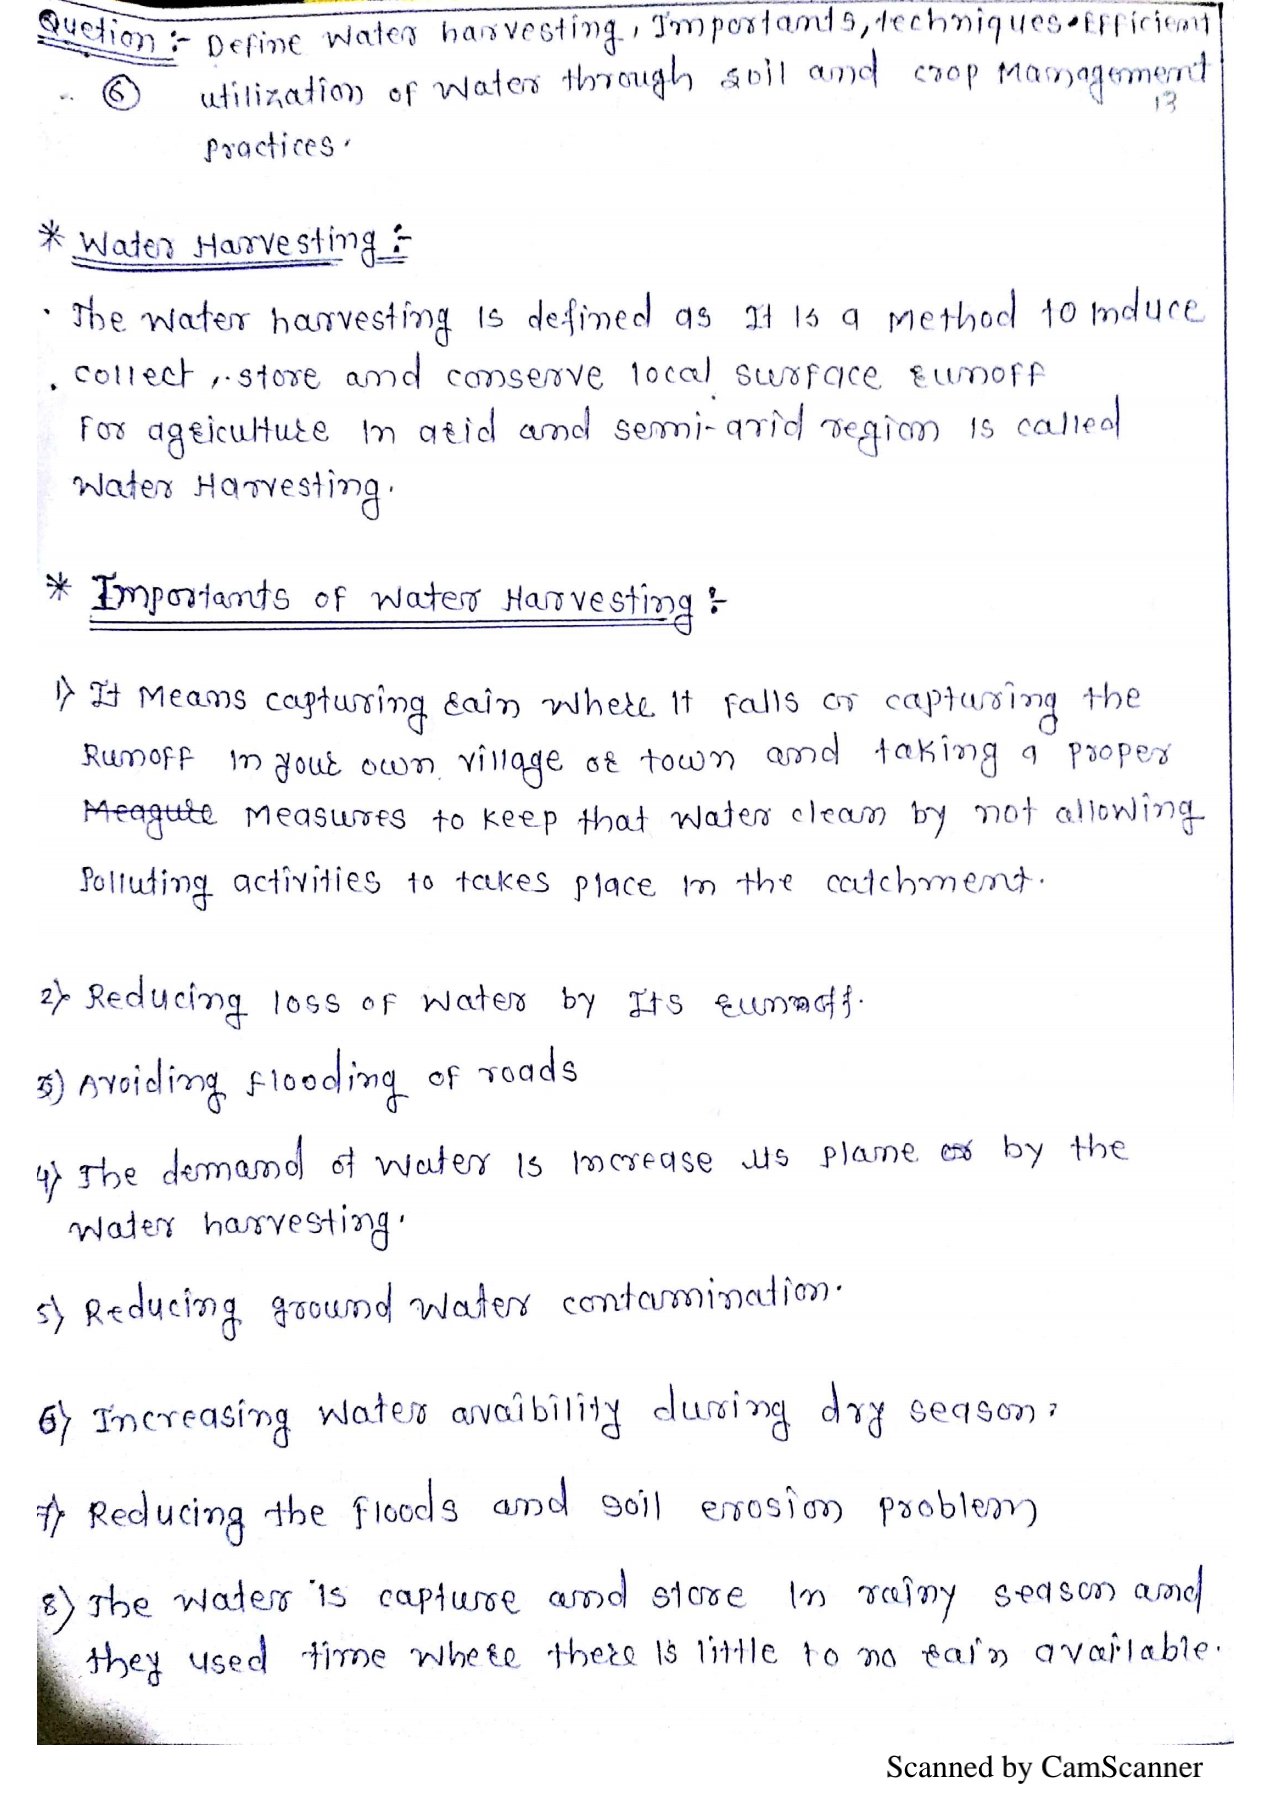 Quetion :- Define Water harvesting, Importants, techniques. Efficient
6 utilization of Water through soil and crop Management
13
practices.
* Water Harvesting :-
. The Water harvesting is defined as It is a Method to Induce
. collect, store and conserve local surface runoff
For agriculture In arid and semi-arid region is called
Water Harvesting.
* Importants of Water Harvesting :-
1) It Means capturing rain where It falls or capturing the
Runoff In your own village or town and taking a proper
Meagure Measures to keep that water clean by not allowing
Polluting activities to takes place In the catchment.
2) Reducing loss of Water by Its runoff.
3) Avoiding flooding of roads
4) The demand of water is Increase its plane or by the
Water harvesting.
5) Reducing ground Water contamination.
6) Increasing Water avaibility during dry season.
7) Reducing the floods and soil erosion problem
8) The Water is capture and store In rainy season and
they used time where there is little to no rain available.
Scanned by CamScanner